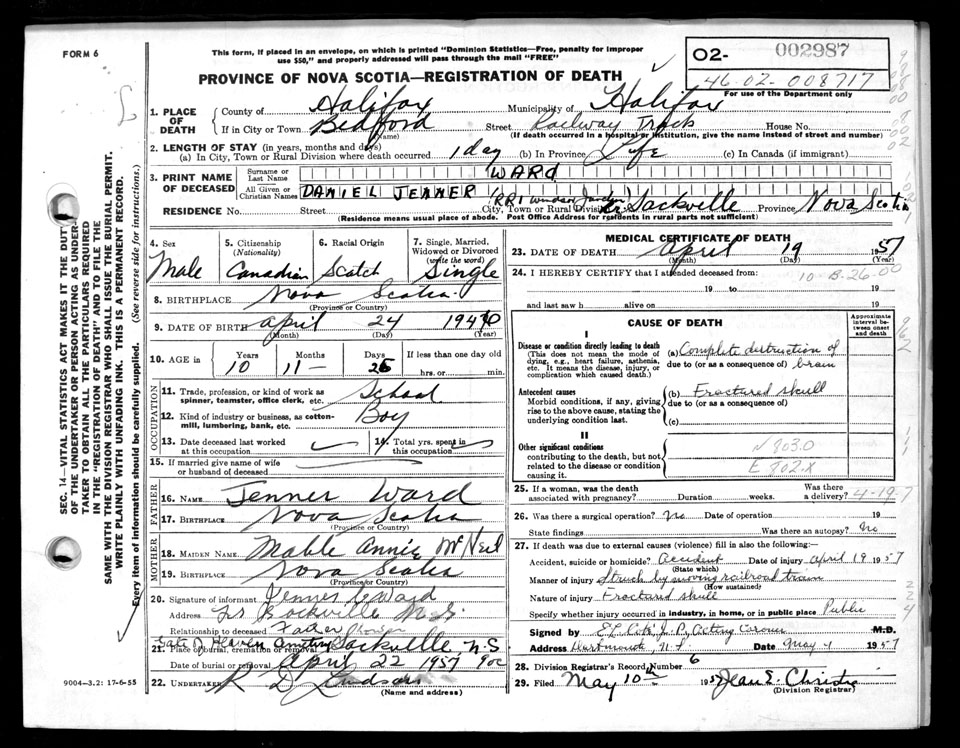 FORM 6
This form, if placed in an envelope, on which is printed "Dominion Statistics—Free, penalty for improper
use $50," and properly addressed will pass through the mail "FREE"
PROVINCE OF NOVA SCOTIA—REGISTRATION OF DEATH
02- 002987
46-02-008717
For use of the Department only
SEC. 14—VITAL STATISTICS ACT MAKES IT THE DUTY
OF THE UNDERTAKER OR PERSON ACTING AS UNDER-
TAKER TO OBTAIN ALL THE PARTICULARS REQUIRED
IN THE "REGISTRATION OF DEATH" AND TO FILE THE
SAME WITH THE DIVISION REGISTRAR WHO SHALL ISSUE THE BURIAL PERMIT.
WRITE PLAINLY WITH UNFADING INK. THIS IS A PERMANENT RECORD.
Every item of information should be carefully supplied. (See reverse side for instructions.)
1. PLACE OF DEATH County of Halifax Municipality of Halifax
If in City or Town Bedford Street Railway Track House No.
(Name) (If death occurred in a hospital or institution, give the name instead of street and number)
2. LENGTH OF STAY (in years, months and days)
(a) In City, Town or Rural Division where death occurred 1 day (b) In Province Life (c) In Canada (if immigrant)
3. PRINT NAME OF DECEASED Surname or Last Name WARD
All Given or Christian Names DANIEL JENNER
RESIDENCE No. Street City, Town or Rural Division (RR1 Windsor Junction) Lr Sackville Province Nova Scotia
(Residence means usual place of abode. Post Office Address for residents in rural parts not sufficient)
4. Sex Male
5. Citizenship (Nationality) Canadian
6. Racial Origin Scotch
7. Single, Married, Widowed or Divorced (write the word) Single
8. BIRTHPLACE Nova Scotia
(Province or Country)
9. DATE OF BIRTH April 24 1940
(Month) (Day) (Year)
10. AGE in Years 10 Months 11 Days 26 If less than one day old hrs. or min.
OCCUPATION
11. Trade, profession, or kind of work as spinner, teamster, office clerk, etc. School
12. Kind of industry or business, as cotton-mill, lumbering, bank, etc. Boy
13. Date deceased last worked at this occupation
14. Total yrs. spent in this occupation
15. If married give name of wife or husband of deceased
FATHER
16. NAME Jenner Ward
17. BIRTHPLACE Nova Scotia
(Province or Country)
MOTHER
18. MAIDEN NAME Mable Annie McNeil
19. BIRTHPLACE Nova Scotia
(Province or Country)
20. Signature of informant Jenner Ward
Address Lr Sackville N.S.
Relationship to deceased Father
21. Place of burial, cremation or removal Sackville, N.S
Date of burial or removal April 22 1957
22. UNDERTAKER R D Lindsay
(Name and address)
9004—3.2: 17-6-55
MEDICAL CERTIFICATE OF DEATH
23. DATE OF DEATH April 19 1957
(Month) (Day) (Year)
24. I HEREBY CERTIFY that I attended deceased from:
10-B-26-00
19 to 19
and last saw h alive on 19
CAUSE OF DEATH
Approximate interval between onset and death
I
Disease or condition directly leading to death
(This does not mean the mode of dying, e.g., heart failure, asthenia, etc. It means the disease, injury, or complication which caused death.)
(a) Complete destruction of brain
due to (or as a consequence of)
Antecedent causes
Morbid conditions, if any, giving rise to the above cause, stating the underlying condition last.
(b) Fractured skull
due to (or as a consequence of)
(c)
II
Other significant conditions
contributing to the death, but not related to the disease or condition causing it.
N 803.0
E 802.X
25. If a woman, was the death associated with pregnancy? Duration weeks. Was there a delivery? 4-19-7
26. Was there a surgical operation? No Date of operation 19
State findings Was there an autopsy? No
27. If death was due to external causes (violence) fill in also the following:
Accident, suicide or homicide? Accident Date of injury April 19 1957
(State which)
Manner of injury Struck by moving railroad train
(How sustained)
Nature of injury Fractured skull
Specify whether injury occurred in industry, in home, or in public place Public
Signed by J. P. Acting Coroner M.D.
Address Dartmouth, N.S. Date May 1 1957
28. Division Registrar's Record Number 6
29. Filed May 10th 1957 Jean E. Christie
(Division Registrar)